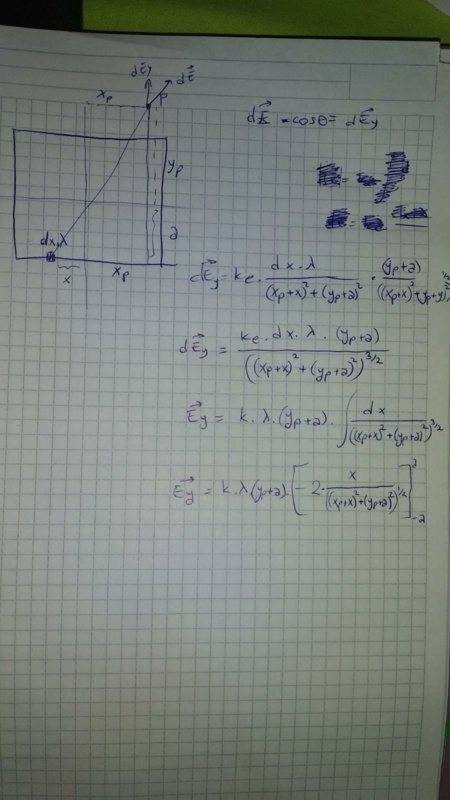 dE⃗y dE⃗
xₚ P
dE⃗ · cosθ = dE⃗y
yₚ
a
dx,λ
x xₚ
dE⃗y = kₑ · dx · λ / ((xₚ+x)² + (yₚ+a)²) · (yₚ+a) / ((xₚ+x)² + (yₚ+y)²)^(1/2)
dE⃗y = kₑ · dx · λ · (yₚ+a) / ((xₚ+x)² + (yₚ+a)²)^(3/2)
E⃗y = k · λ · (yₚ+a) · ∫ dx / ((xₚ+x)² + (yₚ+a)²)^(3/2)
E⃗y = k · λ (yₚ+a) · [ -2 · x / ((xₚ+x)² + (yₚ+a)²)^(1/2) ] a -a